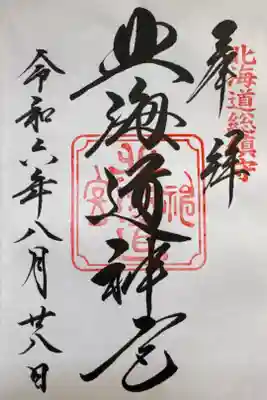 北海道総鎮守
奉拝
北海道神宮
北海道神宮
令和六年八月廿八日